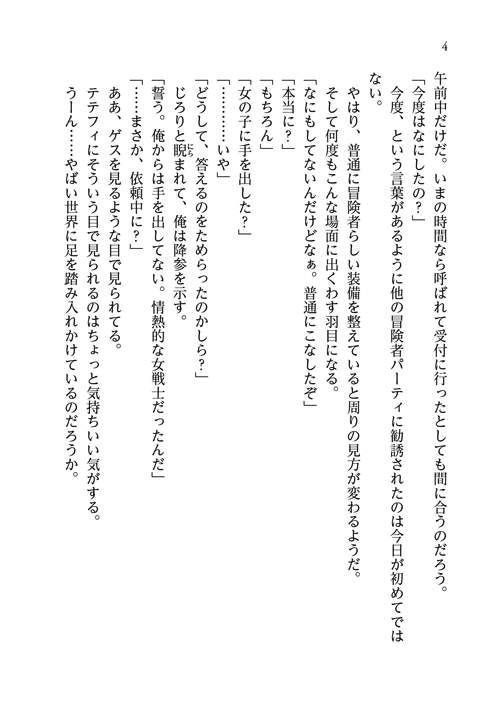 4
午前中だけだ。いまの時間なら呼ばれて受付に行ったとしても間に合うのだろう。
「今度はなにしたの?」
今度、という言葉があるように他の冒険者パーティに勧誘されたのは今日が初めてでは
ない。
やはり、普通に冒険者らしい装備を整えていると周りの見方が変わるようだ。
そして何度もこんな場面に出くわす羽目になる。
「なにもしてないんだけどなぁ。普通にこなしたぞ」
「本当に?」
「もちろん」
「女の子に手を出した?」
「…………いや」
「どうして、答えるのをためらったのかしら?」
じろりと睨にらまれて、俺は降参を示す。
「誓う。俺からは手を出してない。情熱的な女戦士だったんだ」
「……まさか、依頼中に?」
ああ、ゲスを見るような目で見られてる。
テテフィにそういう目で見られるのはちょっと気持ちいい気がする。
うーん……やばい世界に足を踏み入れかけているのだろうか。